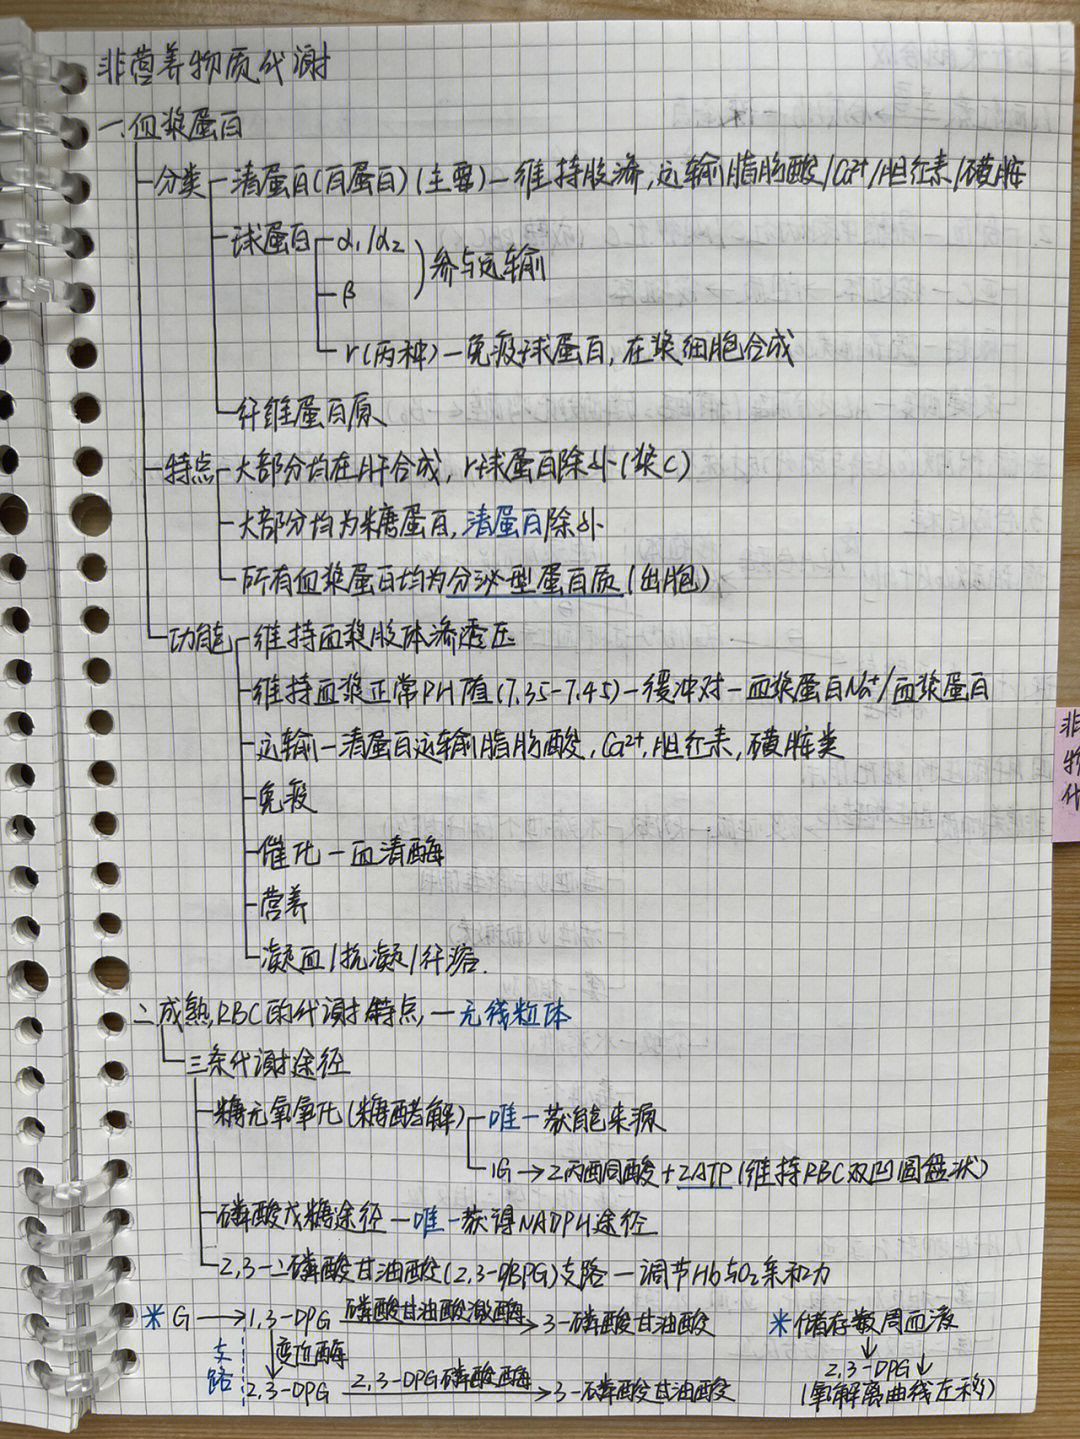 非营养物质代谢
一.血浆蛋白
分类-清蛋白(白蛋白)(主要)-维持胶渗,运输脂肪酸/Ca²⁺/胆红素/磺胺
球蛋白-α₁/α₂
β
)参与运输
r(两种)-免疫球蛋白,在浆细胞合成
纤维蛋白原
特点-大部分均在肝合成,r球蛋白除外(浆C)
大部分均为糖蛋白,清蛋白除外
所有血浆蛋白均为分泌型蛋白质(出胞)
功能-维持血浆胶体渗透压
维持血浆正常PH值(7.35-7.45)-缓冲对-血浆蛋白Na⁺/血浆蛋白
运输-清蛋白运输脂肪酸,Ca²⁺,胆红素,磺胺类
免疫
催化-血清酶
营养
凝血/抗凝/纤溶.
二.成熟RBC的代谢特点-无线粒体
三条代谢途径
糖无氧氧化(糖酵解)-唯一获能来源
1G→2丙酮酸+2ATP(维持RBC双凹圆盘状)
磷酸戊糖途径-唯一获得NADPH途径
2,3-二磷酸甘油酸(2,3-DBPG)支路-调节Hb与O₂亲和力
*G→1,3-DPG 磷酸甘油酸激酶→3-磷酸甘油酸 *储存数周血液
支路 变位酶 ↓
2,3-DPG 2,3-DPG磷酸酶→3-磷酸甘油酸 2,3-DPG↓
(氧解离曲线左移)
非
物
代